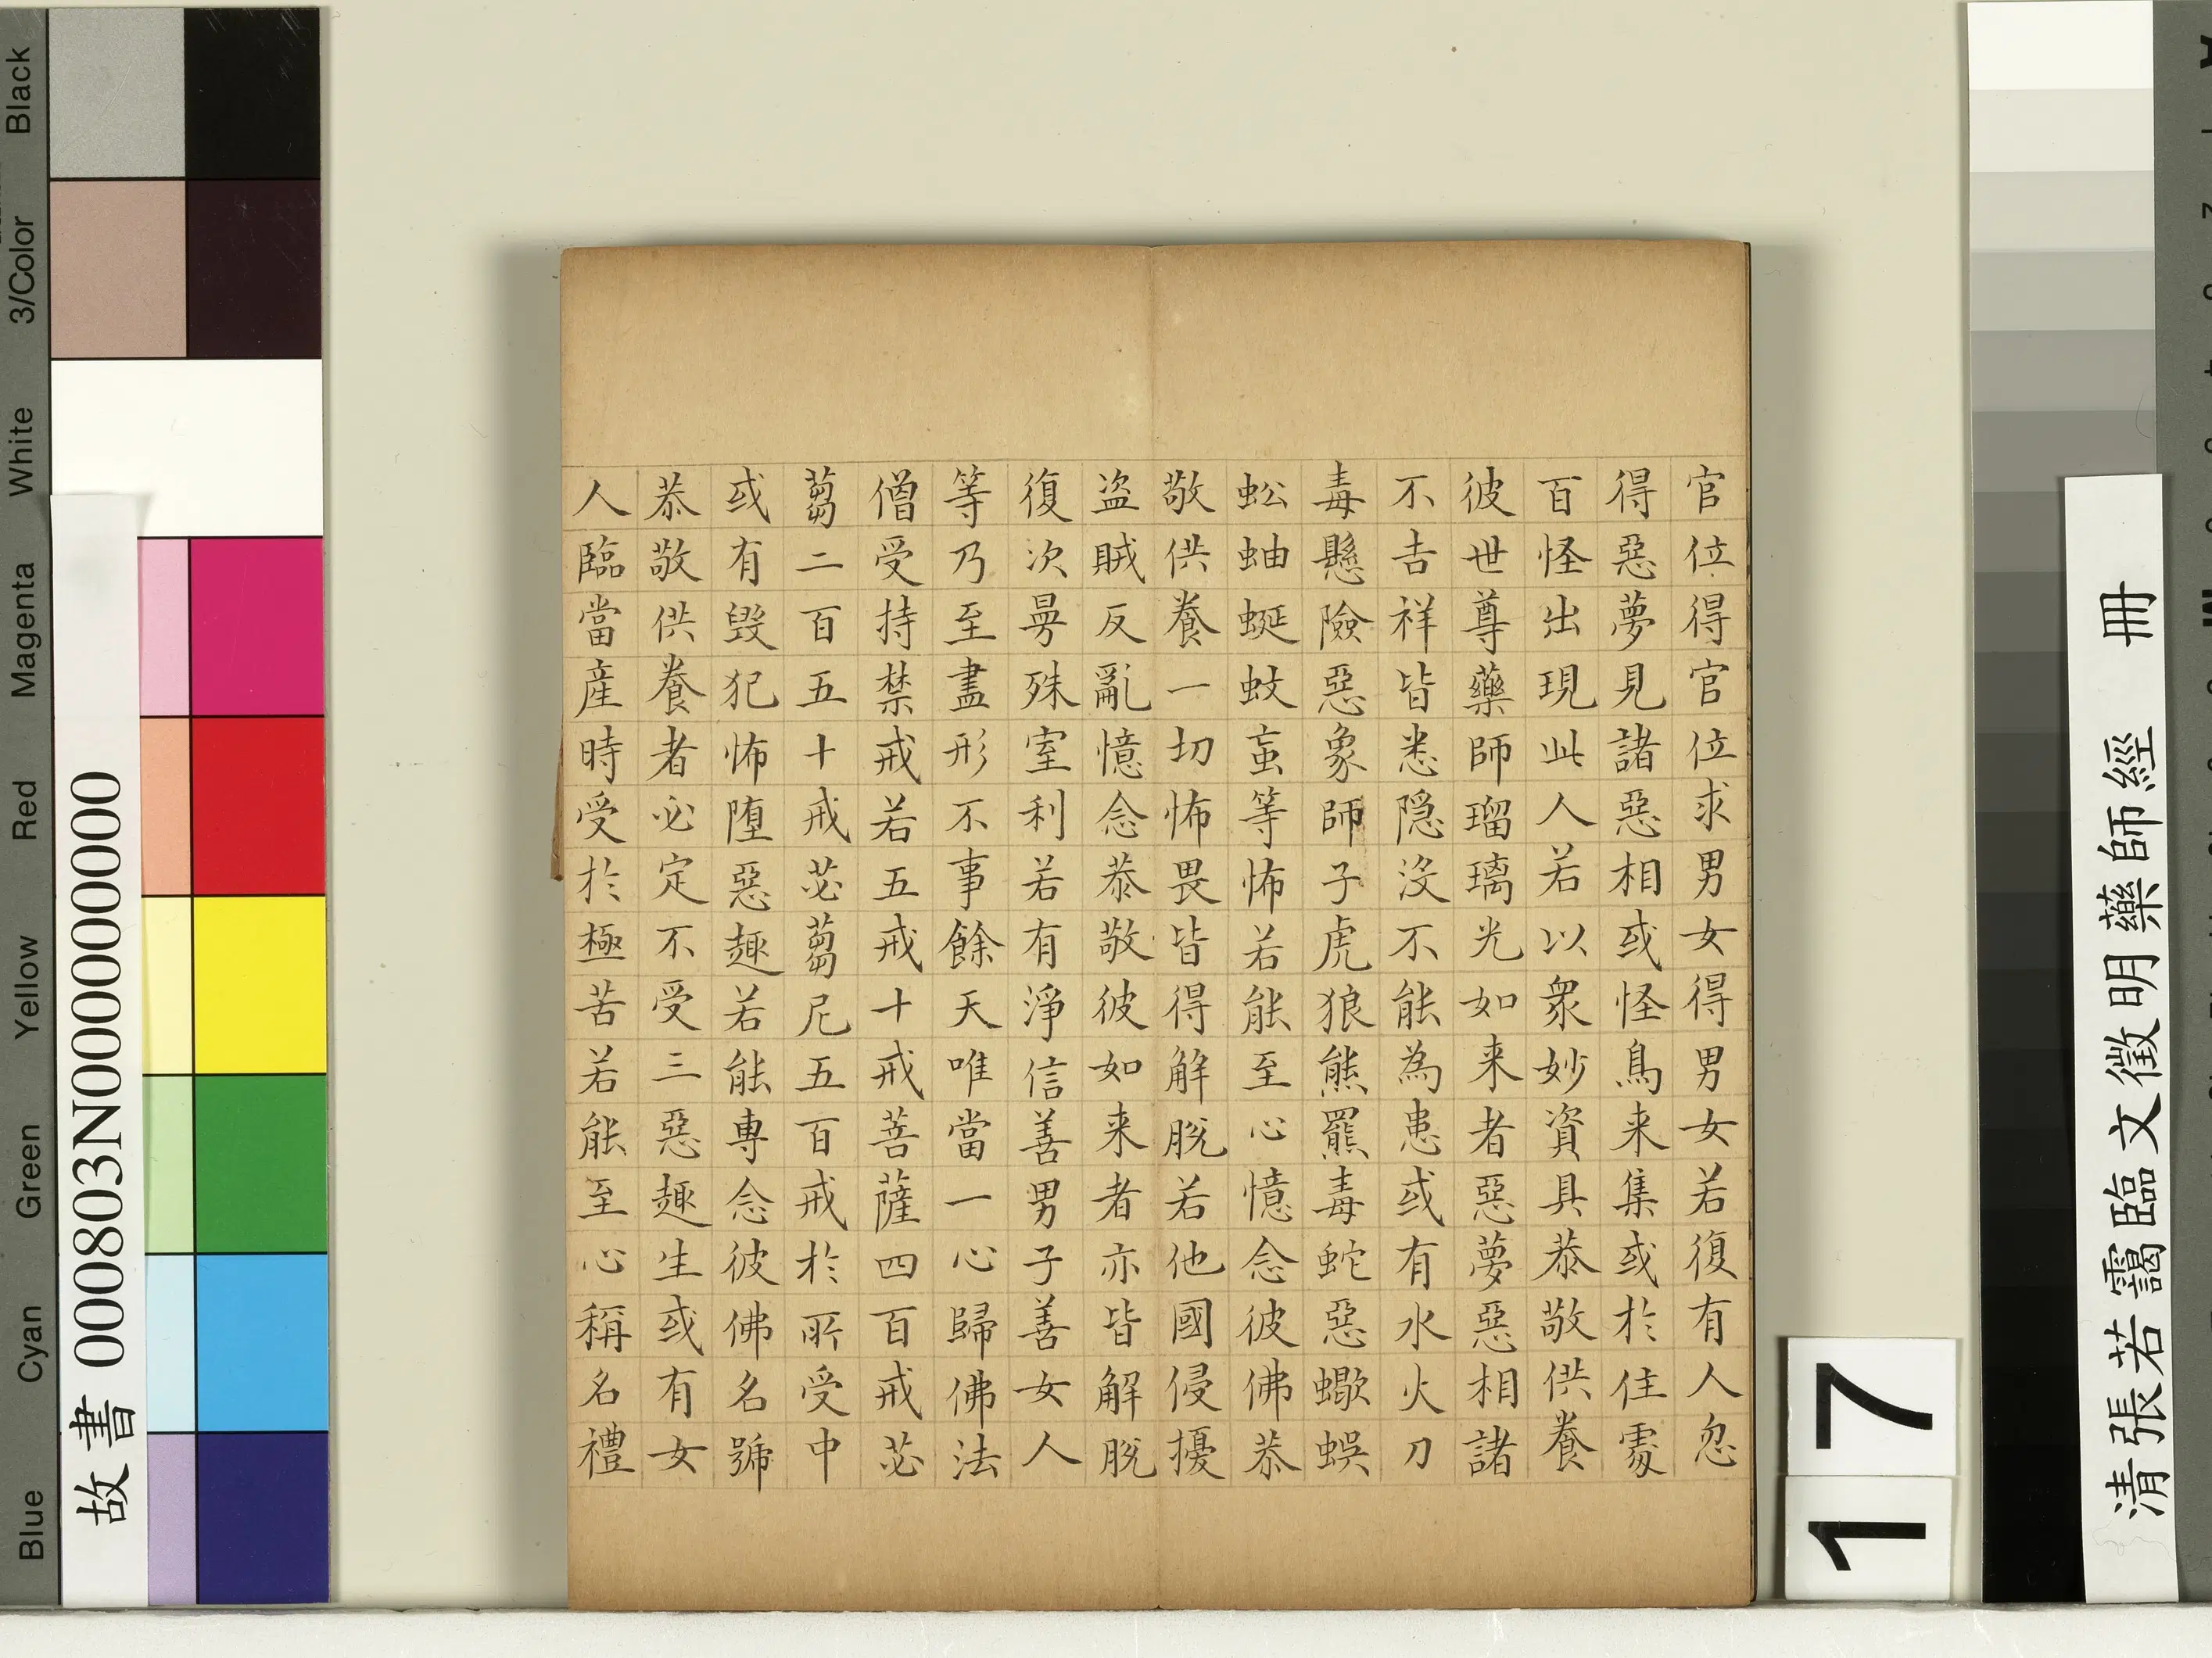 官位得官位求男女得男女若復有人忽
得惡夢見諸惡相或怪鳥来集或於住處
百怪出現此人若以衆妙資具恭敬供養
彼世尊藥師瑠璃光如来者惡夢惡相諸
不吉祥皆悉隱沒不能為患或有水火刀
毒懸險惡象師子虎狼熊羆毒蛇惡蠍蜈
蚣蚰蜒蚊䖟等怖若能至心憶念彼佛恭
敬供養一切怖畏皆得解脫若他國侵擾
盗賊反亂憶念恭敬彼如来者亦皆解脫
復次曼殊室利若有淨信善男子善女人
等乃至盡形不事餘天唯當一心歸佛法
僧受持禁戒若五戒十戒菩薩四百戒苾
蒭二百五十戒苾蒭尼五百戒於所受中
或有毀犯怖墮惡趣若能專念彼佛名號
恭敬供養者必定不受三惡趣生或有女
人臨當産時受於極苦若能至心稱名禮
清張若靄臨文徵明藥師經 冊
17
故書 000803N000000000
Blue Cyan Green Yellow Red Magenta White 3/Color Black